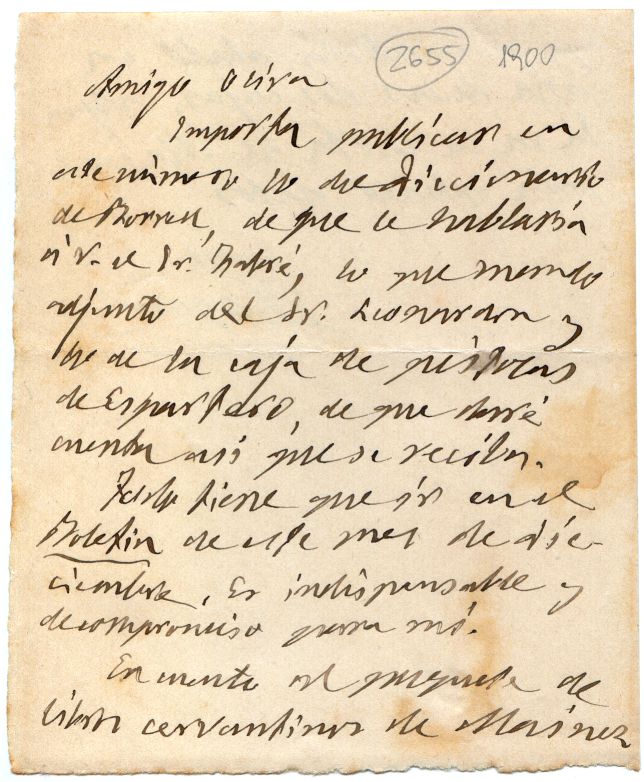 2655 1900
Amigo Oliva
Importa publicar en
este número lo de diccionario
de Borrell, de que le hablaría
á V. el Sr. , lo que mando
adjunto del Sr. y
lo de la caja de pistolas
de Espartero, de que daré
cuenta así que se reciba.
Todo tiene que ir en el
Boletin de este mes de dic-
ciembre. Es indispensable y
de compromiso para mí.
En cuanto al paquete de
libros cervantinos de Mainez